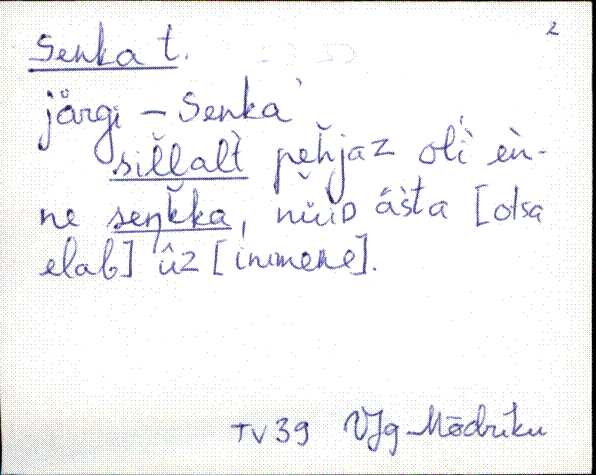 2
Senka t.
järgi – Senka
sillalt pehjaz oli èn-
ne seŋkka, nüüD ästa [otsa
elab] üz [inimene].
TV 39 VJg Mõdriku